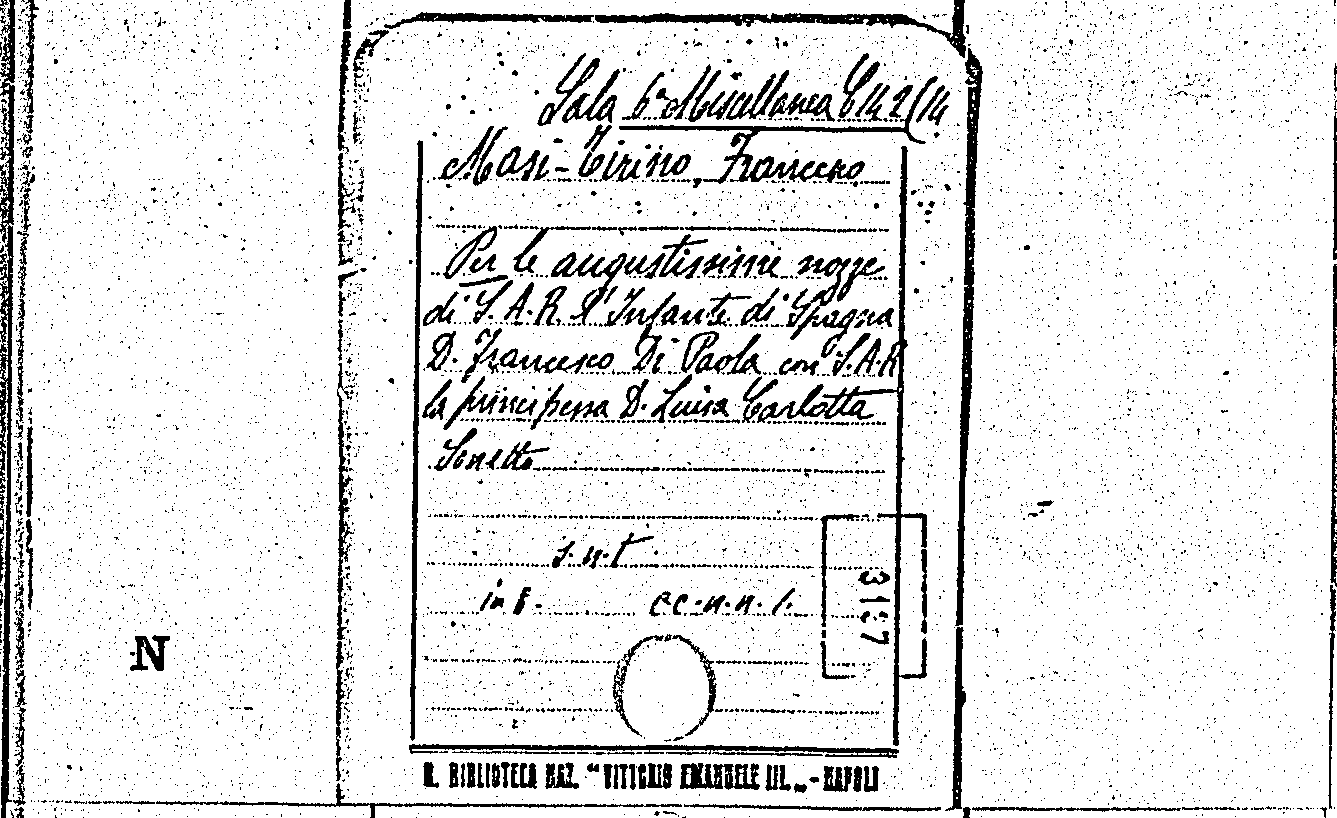 Sala 6ª Miscellanea C 14 2(14
Masi-Tirino, Francesco
Per le augustissime nozze
di S.A.R. l'Infante di Spagna
D. Francesco Di Paola con S.A.R
la principessa D. Luisa Carlotta
Sonetto
s.n.t.
in 8. cc.n.n. 1.
3187
N
R. BIBLIOTECA NAZ. "VITTORIO EMANUELE III„ - NAPOLI